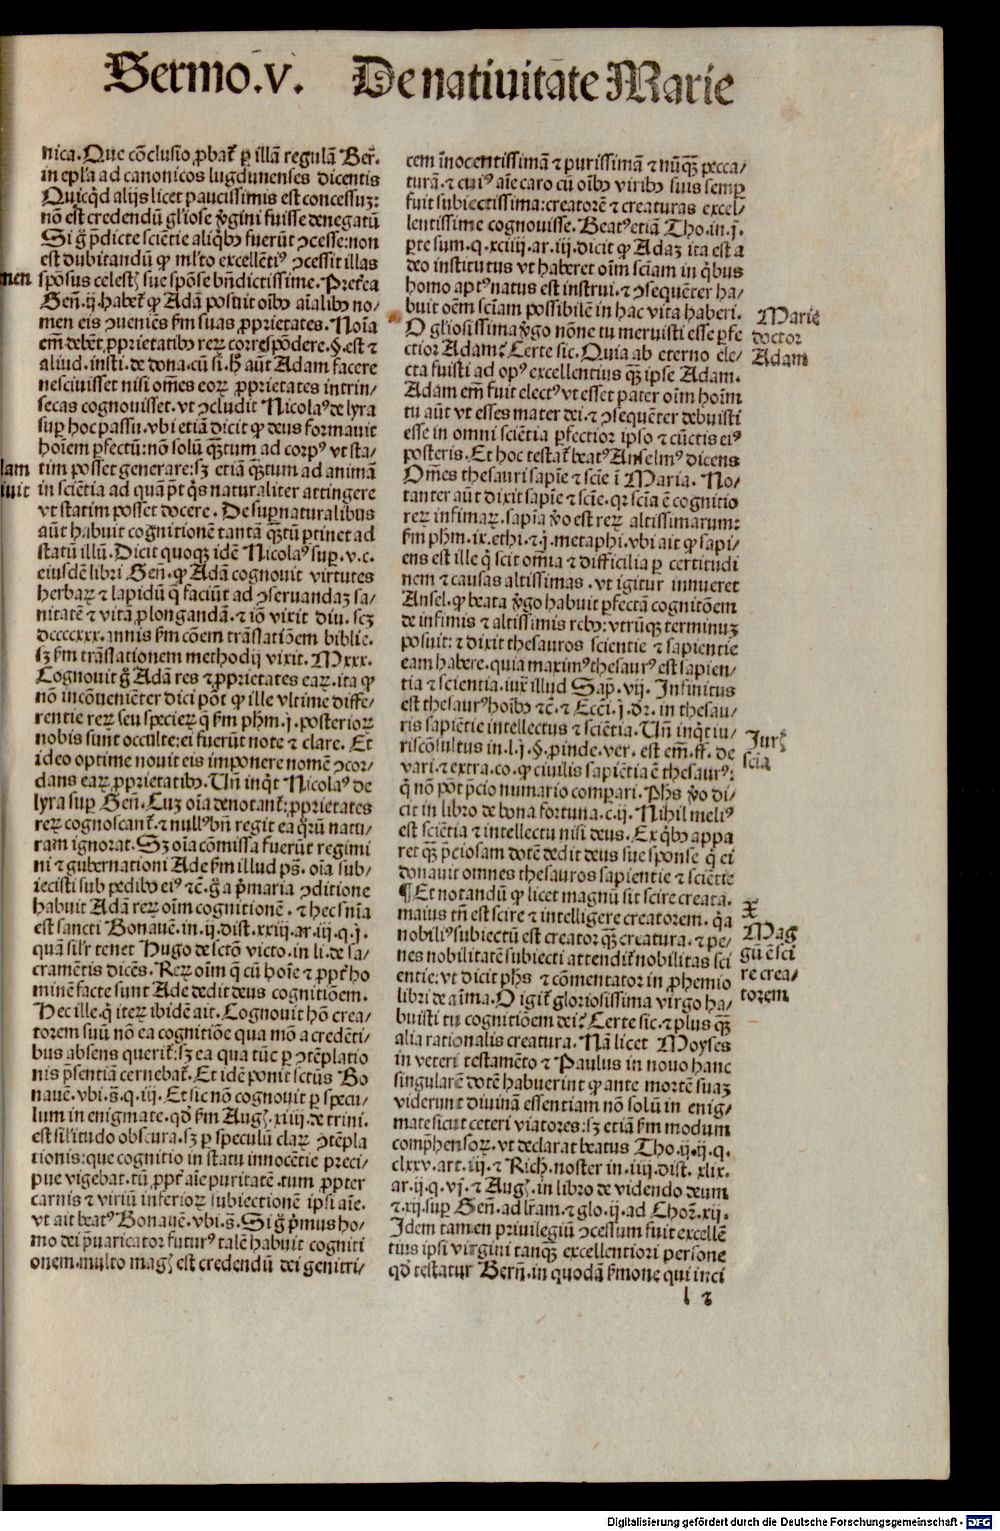 Sermo.v. De natiuitate Marie
nica. Que cõclusio ꝓbat᷑ ꝑ illã regulã Ber̃.
in epl̃a ad canonicos lugdunenses dicentis
Quicq̃d alijs licet paucissimis est concessuz:
nõ est credendũ gl̃iose ṽgini fuisse denegatũ
Si g̃ p̃dicte sciẽtie aliq̃bꝰ fuerũt ↄcesse: non
est dubitandũ ꝙ ml̃to excellẽtiꝰ ↄcessit illas
sponsus celestꝭ sue spõse bñdictissime. Pret̃ea
Geñ.ij. habet᷑ ꝙ Adã posuit oĩbꝰ aĩalibꝰ no-
men eis ↄueniẽs ẜm suas ꝓprietates. Noĩa
em̃ debẽt ꝓprietatibꝰ rerꝝ correspõdere. §. est ⁊
aliud. insti. de dona. cũ si. H̃ aũt Adam facere
nesciuisset nisi om̃es eorꝝ ꝓprietates intrin-
secas cognouisset. vt ↄcludit Nicolaꝰ de lyra
suꝑ hoc passu. vbi etiã dicit ꝙ deus formauit
hoĩem ꝑfectũ: nõ solũ qꝫtum ad corpꝰ vt sta-
tim posset generare: sꝫ etiã qꝫtum ad animã
in sciẽtia ad quã p̃t q̃s naturaliter attingere
vt statim posset docere. De suꝑnaturalibus
aũt habuit cognitionẽ tantã qꝫtũ ꝑtinet ad
statũ illũ. Dicit quoqꝫ idẽ Nicolaꝰ suꝑ.v.c.
eiusdẽ libri Geñ. ꝙ Adã cognouit virtutes
herbarꝝ ⁊ lapidũ q̃ faciũt ad ↄseruandaꝫ sa-
nitatẽ ⁊ vitã ꝓlongandã. ⁊ iõ vixit diu. scꝫ
dccccxxx. annis ẜm cõem trãslatiõem biblie.
sꝫ ẜm trãslationem methodij vixit. Mxxx.
Cognouit g̃ Adã res ⁊ ꝓprietates earꝝ. ita ꝙ
nõ incõueniẽter dici põt ꝙ ille vltime diffe-
rentie rerꝝ seu specierꝝ q̃ ẜm ph̃m.j. posteriorꝝ
nobis sunt occulte: ei fuerũt note ⁊ clare. Et
ideo optime nouit eis imponere nomẽ ↄcor-
dans earꝝ ꝓprietatibꝰ. Uñ inq̃t Nicolaꝰ de
lyra suꝑ Geñ. Cuz oĩa denotant᷑: ꝓprietates
rerꝝ cognoscant᷑. ⁊ nullꝰ bñ regit ea q̃rũ natu-
ram ignorat. Sꝫ oĩa cõmissa fuerũt regimi
ni ⁊ gubernationi Ade ẜm illud ps̃. oĩa sub-
iecisti sub pedibꝰ eiꝰ ⁊c̃. g̃ a p̃maria ↄditione
habuit Adã rerꝝ oĩm cognitionẽ. ⁊ hec snĩa
est sancti Bonauẽ. in.ij. dist.xxiij.ar.iij.q.j.
quã sil̃r tenet Hugo de scto victo. in li. de sa-
cramẽtis dicẽs. Rerꝝ oĩm q̃ cũ hoĩe ⁊ ꝓpt᷑ ho
minẽ facte sunt Ade dedit deus cognitiõem.
Hec ille. q̃ iterꝝ ibidẽ ait. Cognouit hõ crea-
torem suũ nõ ea cognitiõe qua mõ a credẽti-
bus absens querit᷑: sꝫ ea qua tũc ꝑ ↄtẽplatio
nis p̃sentiã cernebat᷑. Et idẽ ponit sctũs Bo
nauẽ. vbi.s̃.q.iij. Et sic nõ cognouit ꝑ specu-
lum in enigmate. qd̃ ẜm Augꝭ. xiiij. de trini.
est sil̃itudo obscura. sꝫ ꝑ speculũ clarꝝ ↄtẽpla
tionis: que cognitio in statu innocẽtie preci-
pue vigebat. tũ ꝓpt᷑ aĩe puritatẽ. tum ꝓpter
carnis ⁊ viriũ inferiorꝝ subiectionẽ ipsi aĩe.
vt ait beatꝰ Bonauẽ. vbi.s̃. Si g̃ p̃mus ho-
mo dei p̃uaricator futurꝰ talẽ habuit cogniti
onem. multo magꝭ est credendũ dei genitri-
cem ĩnocentissimã ⁊ purissimã ⁊ nũqꝫ pecca-
turã. ⁊ cuiꝰ aĩe caro cũ oĩbꝰ viribꝰ suis semꝑ
fuit subiectissima: creatorẽ ⁊ creaturas excel-
lentissime cognouisse. Beatꝰ etiã Tho. in.j.
ꝑte sum.q.xciiij.ar.iij. dicit ꝙ Adaz ita est a
deo institutus vt haberet oĩm sciãm in q̃bus
homo aptꝰ natus est instrui. ⁊ ↄsequẽter ha-
buit oẽm sciãm possibilẽ in hac vita haberi.
O gl̃iosissima ṽgo nõne tu meruisti esse ꝑfe
ctior Adam? Certe sic. Quia ab eterno ele-
cta fuisti ad opꝰ excellentius qꝫ ipse Adam.
Adam em̃ fuit electꝰ vt esset pater oĩm hoĩm
tu aũt vt esses mater dei. ⁊ ↄsequẽter debuisti
esse in omni sciẽtia ꝑfectior ipso ⁊ cũctis eiꝰ
posteris. Et hoc testat᷑ beatꝰ Anselmꝰ dicens
Om̃es thesauri sapiẽ ⁊ sciẽ ĩ Maria. No-
tanter aũt dixit sapiẽ ⁊ sciẽ. qꝛ sciã ẽ cognitio
rerꝝ infimarꝝ. sapĩa ṽo est rerꝝ altissimarum:
ẜm ph̃m.ix. ethi. ⁊.j. metaphi. vbi ait ꝙ sapi-
ens est ille q̃ scit om̃ia ⁊ difficilia ꝑ certitudi
nem ⁊ causas altissimas. vt igitur innueret
Ansel. ꝙ beata ṽgo habuit ꝑfectã cognitõem
de infimis ⁊ altissimis rebꝰ: vtrũqꝫ terminuꝫ
posuit: ⁊ dixit thesauros scientie ⁊ sapientie
eam habere. quia maximꝰ thesaurꝰ est sapien-
tia ⁊ scientia. iux̃ illud Sap̃. vij. Infinitus
est thesaurꝰ hoĩbꝰ ⁊c̃. ⁊ Ecc̃i.j. dr̃. in thesau-
ris sapiẽtie intellectus ⁊ sciẽtia. Uñ inq̃t iu-
riscõsultus in.l.j. §. ꝓinde. ver. est em̃. ff. de
vari. ⁊ extra. co. ꝙ ciuilis sapiẽtia ẽ thesaurꝰ:
q̃ nõ põt p̃cio numario comꝑari. Ph̃s ṽo di-
cit in libro de bona fortuna.c.ij. Nihil meliꝰ
est sciẽtia ⁊ intellectu nisi deus. Ex q̃bꝰ appa
ret qꝫ p̃ciosam dotẽ dedit deus sue sponse q̃ ei
donauit omnes thesauros sapientie ⁊ sciẽtie
¶ Et notandũ ꝙ licet magnũ sit scire creata.
maius tñ est scire ⁊ intelligere creatorem. q̃a
nobiliꝰ subiectũ est creator qꝫ creatura. ⁊ pe-
nes nobilitatẽ subiecti attendit᷑ nobilitas sci
entie. vt dicit ph̃s ⁊ cõmentator in ꝓhemio
libri de aĩma. O igit᷑ gloriosissima virgo ha-
buisti tu cognitiõem dei? Certe sic. ⁊ plus qꝫ
alia rationalis creatura. Nã licet Moyses
in veteri testamẽto ⁊ Paulus in nouo hanc
singularẽ dotẽ habuerint ꝙ ante mortẽ suaꝫ
viderunt diuinã essentiam nõ solũ in enig-
mate sicut ceteri viatores: sꝫ etiã ẜm modum
comp̃hensorꝝ. vt declarat beatus Tho.ij.ij.q.
clxxv. art.iij. ⁊ Rich̃. noster in.iiij. dist.xlix.
ar.ij.q.vj. ⁊ Augꝭ. in libro de videndo deum
⁊.xij. suꝑ Geñ. ad lr̃am. ⁊ glo.ij. ad Chorꝝ.xij.
Idem tamen priuilegiũ ↄcessum fuit excellẽ
tius ipsi virgini tanqꝫ excellentiori persone
qd̃ testatur Berñ. in quodã ẜmone qui inci
l 2
men
lam
iuit
Marie
doctor
Adam
Jurꝭ
scia
Mag
gũ ẽ sci
re crea-
torem
Digitalisierung gefördert durch die Deutsche Forschungsgemeinschaft - DFG